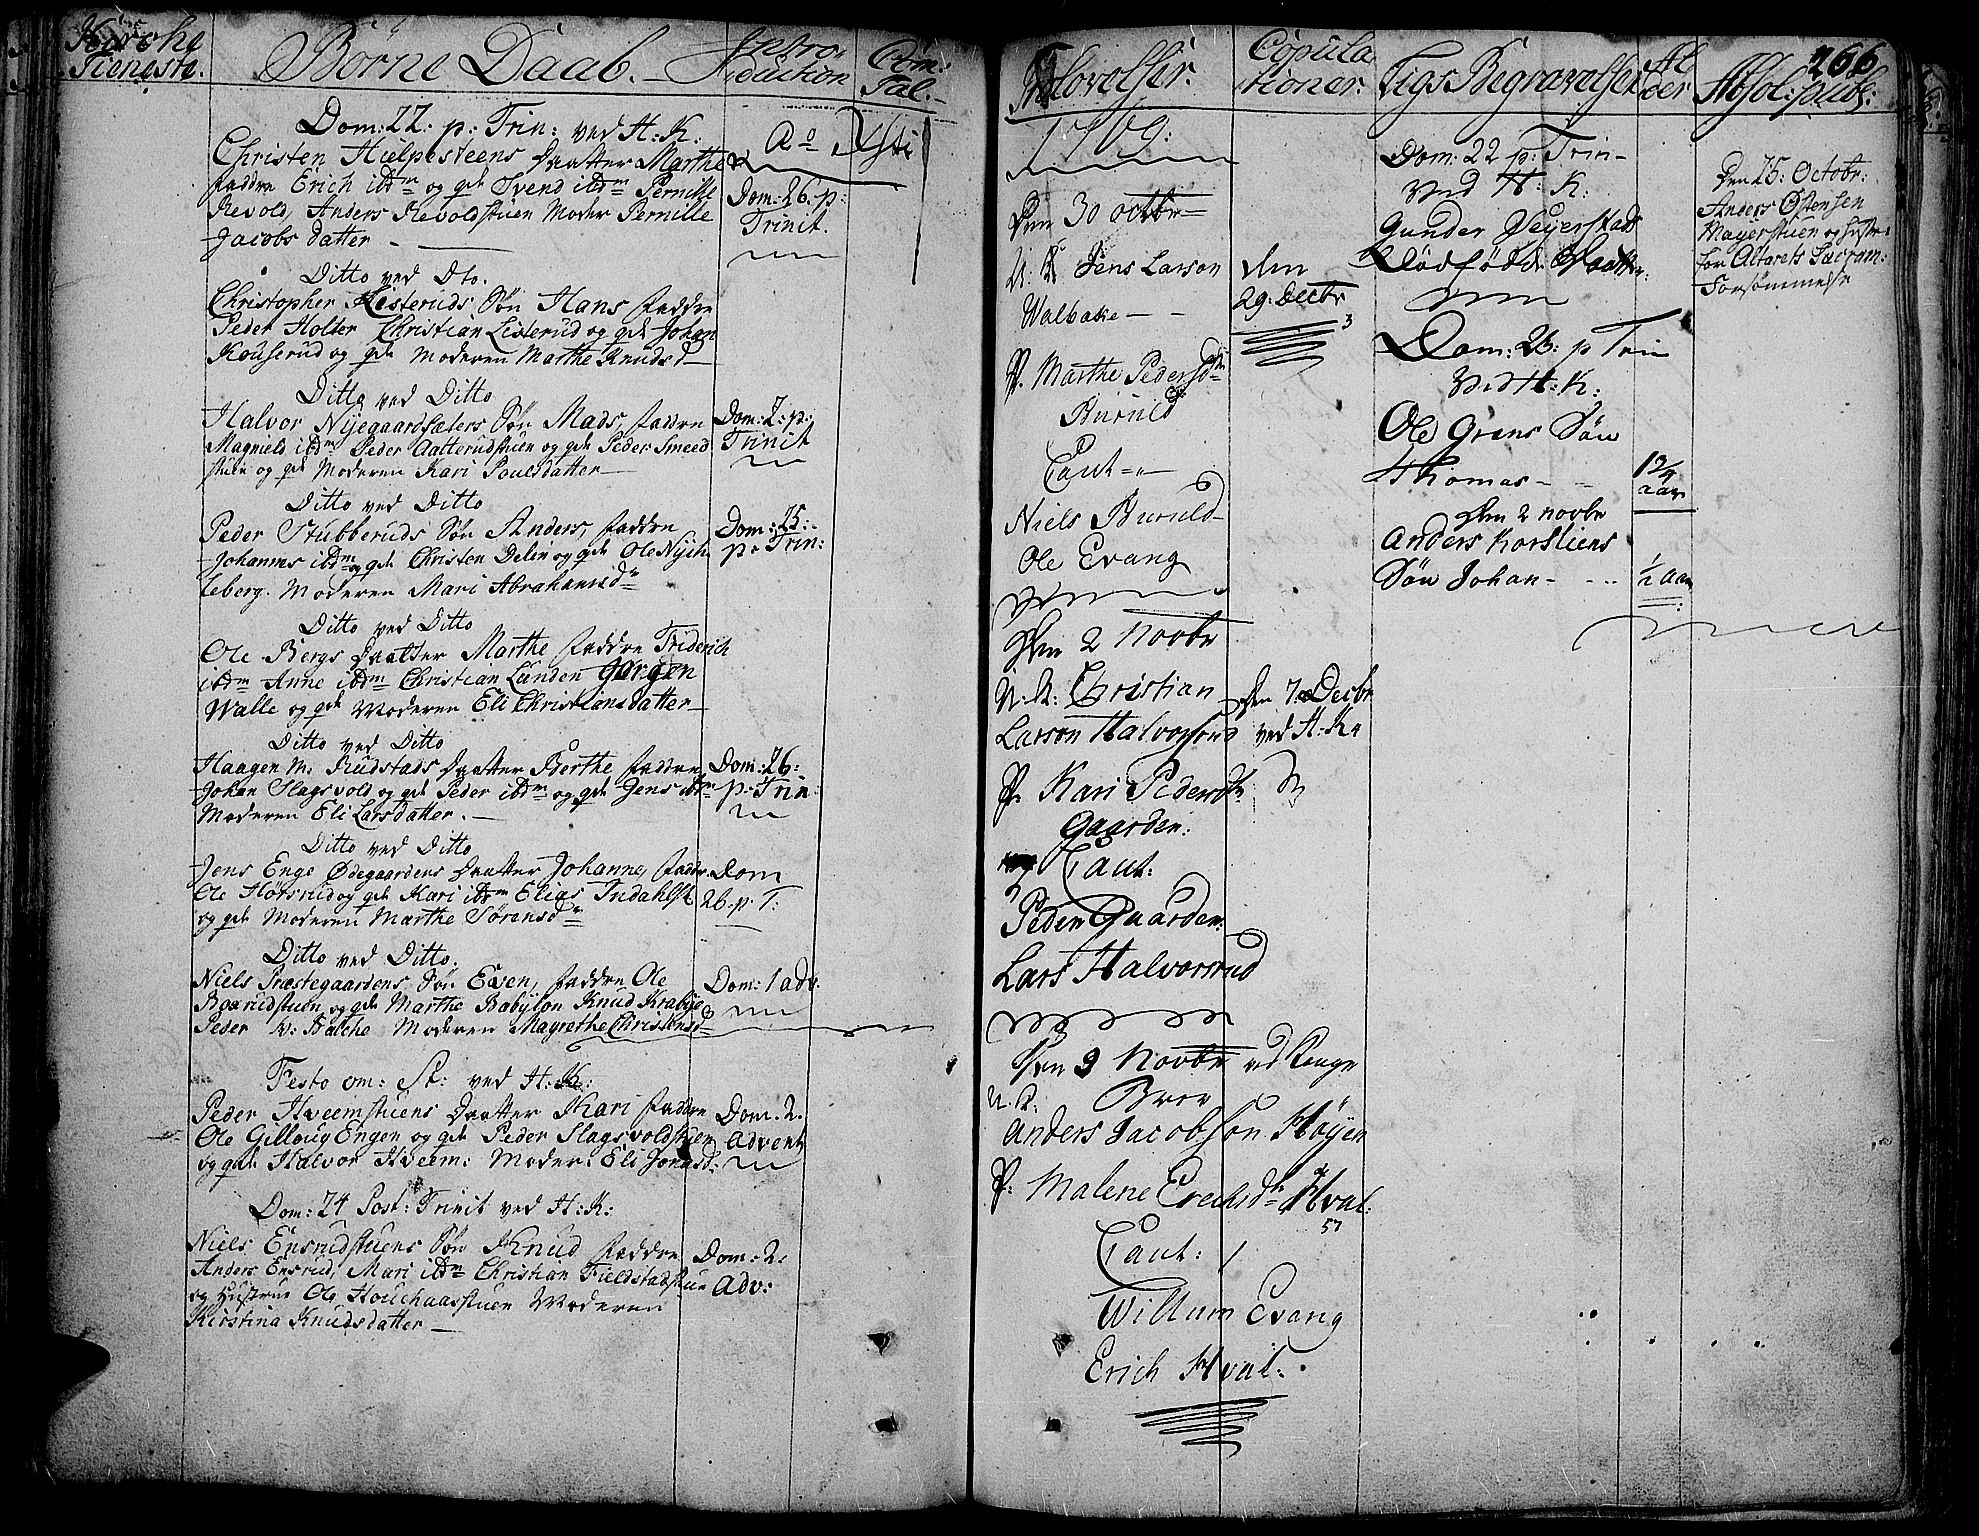 Kirche
Tieneste.
Börne Daab.
Intro
duction
Com:
Tal.
Dom: 22: p: Trin: ved H: K:
Christen Hielpesteens Daatter Marthe
Faddre Erich ibdm og qde Svend ibdm Pernille
Revold, Anders Revoldstuen Moder Pernille
Jacobs datter -
Dom: 26. p:
Trinit.
Ao Xsti
Ditto ved Dto.
Christopher Listeruds Søn Hans Faddre
Peder Holter Christian Listerud og qde Johan
Kouserud og qde Moderen Marthe Knudsd
Ditto ved Ditto
Halvor Nijegaardsæters Søn Mads, Faddre
Magnild ibdm Peder Aatterudstuen og qde Peder Smeed
stuen og qde Moderen Kari Poulsdatter
Dom: 2: p:
Trinit
Ditto ved Ditto
Peder Stubberuds Søn Anders, Faddre
Johannes ibdm og qde Christen Delen og qde Ole Nijch
leberg. Moderen Mari Abrahamsdr
Dom: 25:
p: Trin:
Ditto ved Ditto
Ole Bergs Daatter Marthe Faddre Friderich
ibdm Anne ibdm Christian Lunden Jørgen
Walle og qde Moderen Eli Christiansdatter
Ditto ved Ditto
Haagen M. Rudstads Daatter Berthe Faddre
Johan Slagsvold og qde Peder ibdm og qde Jens ibdm
Moderen Eli Larsdatter.
Dom: 26:
p: Trin:
Ditto ved Ditto
Jens Enge Ødegaardens Daatter Johanne, Faddr
Ole Hørsrud og qde Kari ibdm Elias Indahlst
og qde Moderen Marthe Sørensdr
Dom
26. p. T:
Ditto ved Ditto.
Niels Præstegaardens Søn Even, Faddre Ole
Baarudstuen og qde Marthe Babylon Knud Krabye
Peder v: Balche Moderen Magrethe Christensd
Dom: 1 adv.
Festo om: St: ved H: K:
Peder Hveemstuens Daatter Kari Faddre
Ole Gilloug Engen og qde Peder Slagsvoldstuen
og qde Halvor Hveem: Moder: Eli Jonasd:
Dom: 2.
Advent
Dom: 24 Post: Trinit ved H: K:
Niels Ensrudstuens Søn Knud Faddre
Anders Ensrud, Mari ibdm Christian Fieldstadstuen
og Hustrue Ole Houchaasstuen Moderen
Kirstina Knudsdatter
Dom: 2:
Adv:
Trolovelser.
Copula
tioner:
Ligs Begravelser
Al
der
Absol: publ:
266
1769:
Den 30 octbr
U. K Jens Larson
Walbake - -
den
29. Decbr
3
P. Marthe Pedersdr
Buruld
Caut
Niels Buruld
Ole Evang
Den 2 Novbr
U. K: Christian
Larson Halvorsrud
den 7. Decbr
ved H. K.
P. Kari Pedersdr
Gaarden:
Caut:
Peder Gaarden:
Lars Halvorsrud
Den 9 Novbr ved Konge
Brev
U. K:
Anders Jacobson Höyen
P: Malene Erichsdr Hval:
57
Caut:
Willum Evang
Erich Hval.
Dom: 22 p: Trin
ved H: K:
Gunder Skyerstads
Dödfödde Daatter
Dom: 23: p Trin
ved H: K:
Ole Grans Søn
Thomas -
aar
Den 2 Novbr
Anders Korstiens
Søn Johan - ½ Aar
Den 25: Octobr:
Anders Østensen
Mayerstuen og Hustru
for Altarets Sacram:
Forsømmelse